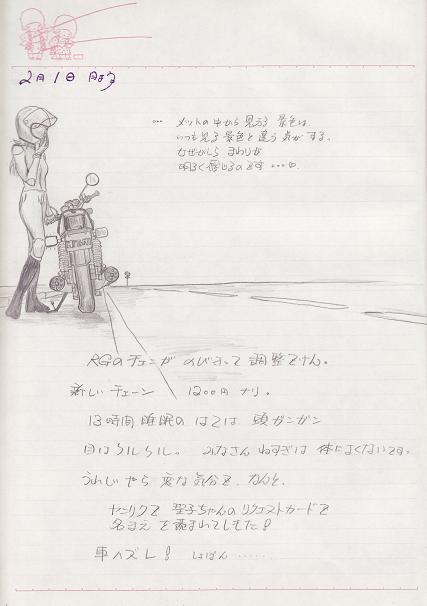 2月1日
… メットの中から見える景色は、
いつも見る景色と違う気がする。
なぜかしら まわりが
明るく感じるのです …♡
RGのチェンが のびきって 調整できん。
新しい チェーン 1200円ナリ。
13時間 睡眠の はては 頭ガンガン
目はクルクル。 みなさん ねすぎは 体によくないです。
うれしいやら 変な気分で、なんと、
ヤンリクで 聖子ちゃんの リクエストカードで
名まえ を 読まれてしもた!
車ハズレ! しょぼん ……